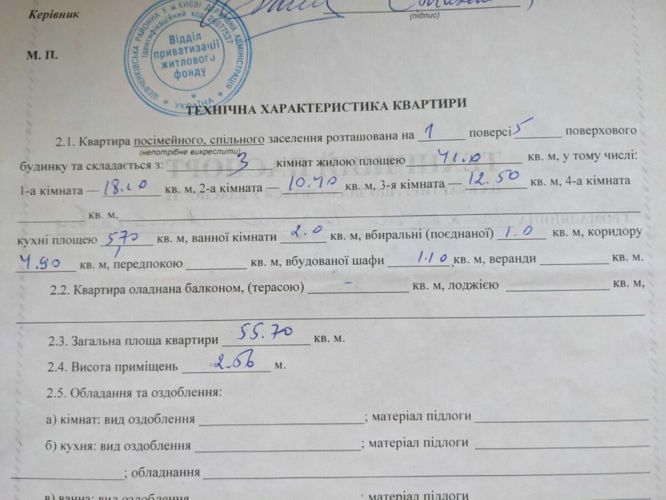 Керівник
(підпис)
ШЕВЧЕНКІВСЬКА РАЙОННА У М.КИЄВІ ДЕРЖАВНА АДМІНІСТРАЦІЯ
Ідентифікаційний код 26077537
Відділ
приватизації
житлового
фонду
* УКРАЇНА *
М. П.
ТЕХНІЧНА ХАРАКТЕРИСТИКА КВАРТИРИ
2.1. Квартира посімейного, спільного заселення розташована на 1 поверсі 5 поверхового
(непотрібне викреслити)
будинку та складається з: 3 кімнат жилою площею 41.0 кв. м, у тому числі:
1-а кімната — 18.10 кв. м, 2-а кімната — 10.40 кв. м, 3-я кімната — 12.50 кв. м, 4-а кімната
кв. м,
кухні площею 5,70 кв. м, ванної кімнати 2.0 кв. м, вбиральні (поєднаної) 1.0 кв. м, коридору
4.90 кв. м, передпокою кв. м, вбудованої шафи 1.10 кв. м, веранди кв. м.
2.2. Квартира оладнана балконом, (терасою) - кв. м, лоджією кв. м,
2.3. Загальна площа квартири 55.70 кв. м.
2.4. Висота приміщень 2.56 м.
2.5. Обладання та оздоблення:
а) кімнат: вид оздоблення ; матеріал підлоги
б) кухня: вид оздоблення ; матеріал підлоги
; обладнання
в) ванна: вид оздоблення ; матеріал підлоги